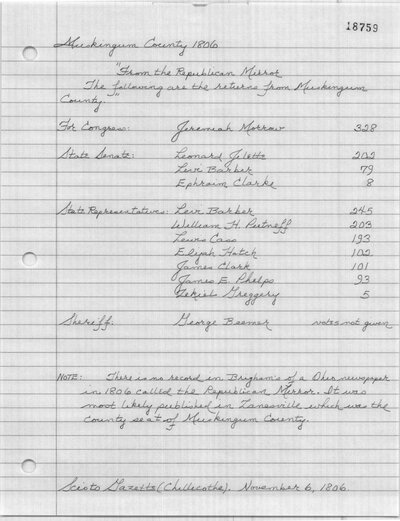 18759
Muskingum County 1806
"From the Republican Mirror
The following are the returns from Muskingum
County."
For Congress: Jeremiah Morrow 328
State Senate: Leonard Jiletts 202
Levi Barber 79
Ephraim Clarke 8
State Representatives: Levi Barber 245
William H. Putneff 203
Lewis Cass 193
Elijah Hatch 102
James Clark 101
James E. Phelps 93
Zekiel Greggery 5
Sheriff: George Beemer votes not given
NOTE: There is no record in Brigham's of a Ohio newspaper
in 1806 called the Republican Mirror. It was
most likely published in Zanesville which was the
county seat of Muskingum County.
Scioto Gazette (Chillicothe). November 6, 1806.